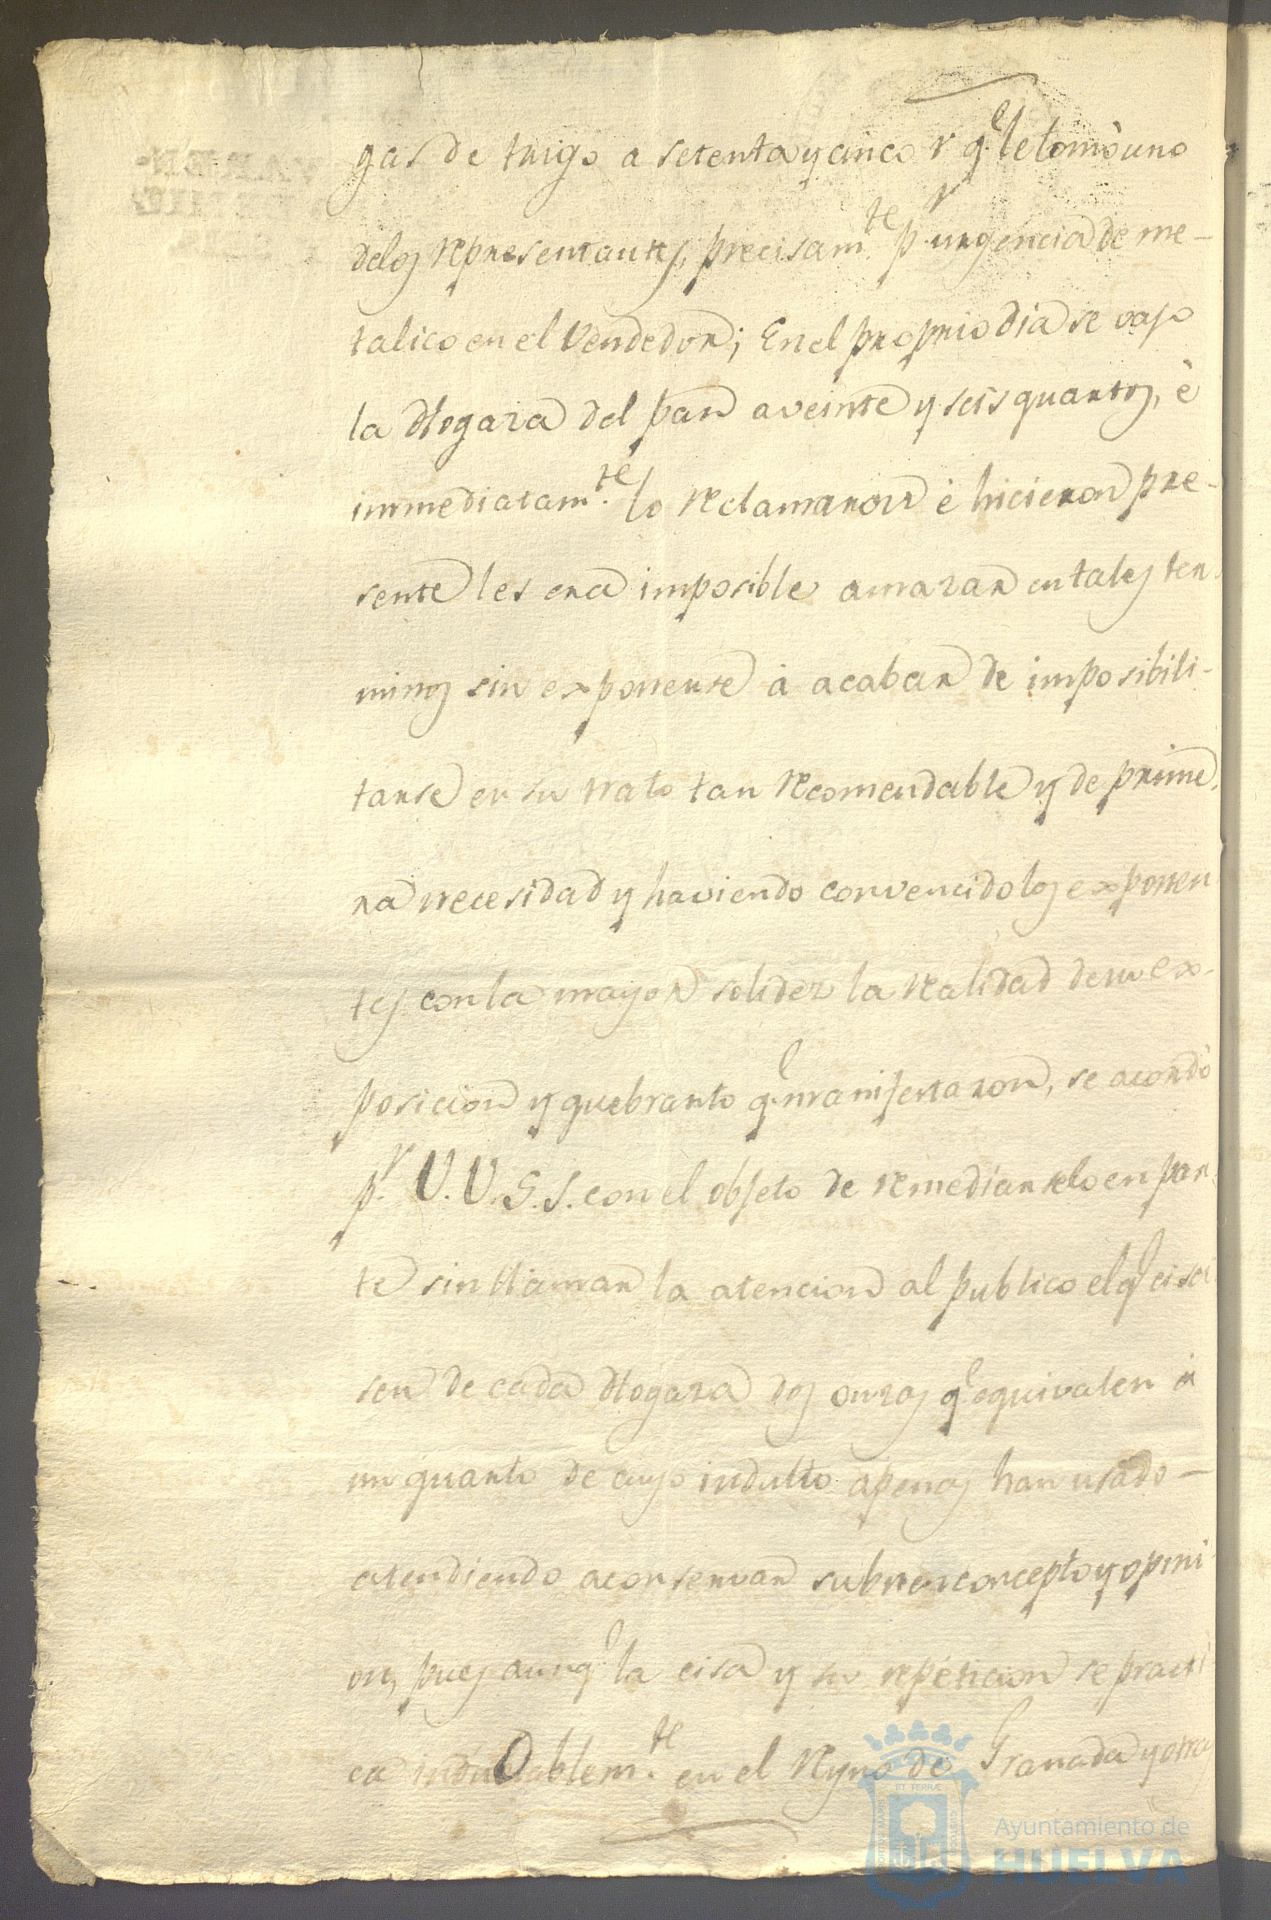 gas de trigo a setenta y cinco r q.e le tomò uno
delos representantes, precisam.te p.r urgencia de me-
talico en el Vendedor; En el proprio dia se vajo
la Hogaza del pan a veinte y seis quartos, è
immediatam.te lo reclamaron è hicieron pre-
sente les era imposible amazar en tales ter-
minos sin exponerse à acabar de imposibili-
tarse en su trato tan recomendable y de prime-
ra necesidad y haviendo convencido los exponen
tes con la mayor solidez la realidad de su ex-
posicion y quebranto q.e manifestaron, se acordò
p.r V.V.S.S. con el objeto de remediarselo en par-
te sin llamar la atencion al publico el q.e cisa
sen de cada Hogaza dos onzas q.e equivalen à
un quarto de cuyo indulto apenas han usado -
atendiendo a conservar su buen concepto y opini-
on, pues aunq.e la cisa y su repeticion se practi
ca indudablem.te en el Reyno de Granada y otros
Ayuntamiento de
HUELVA